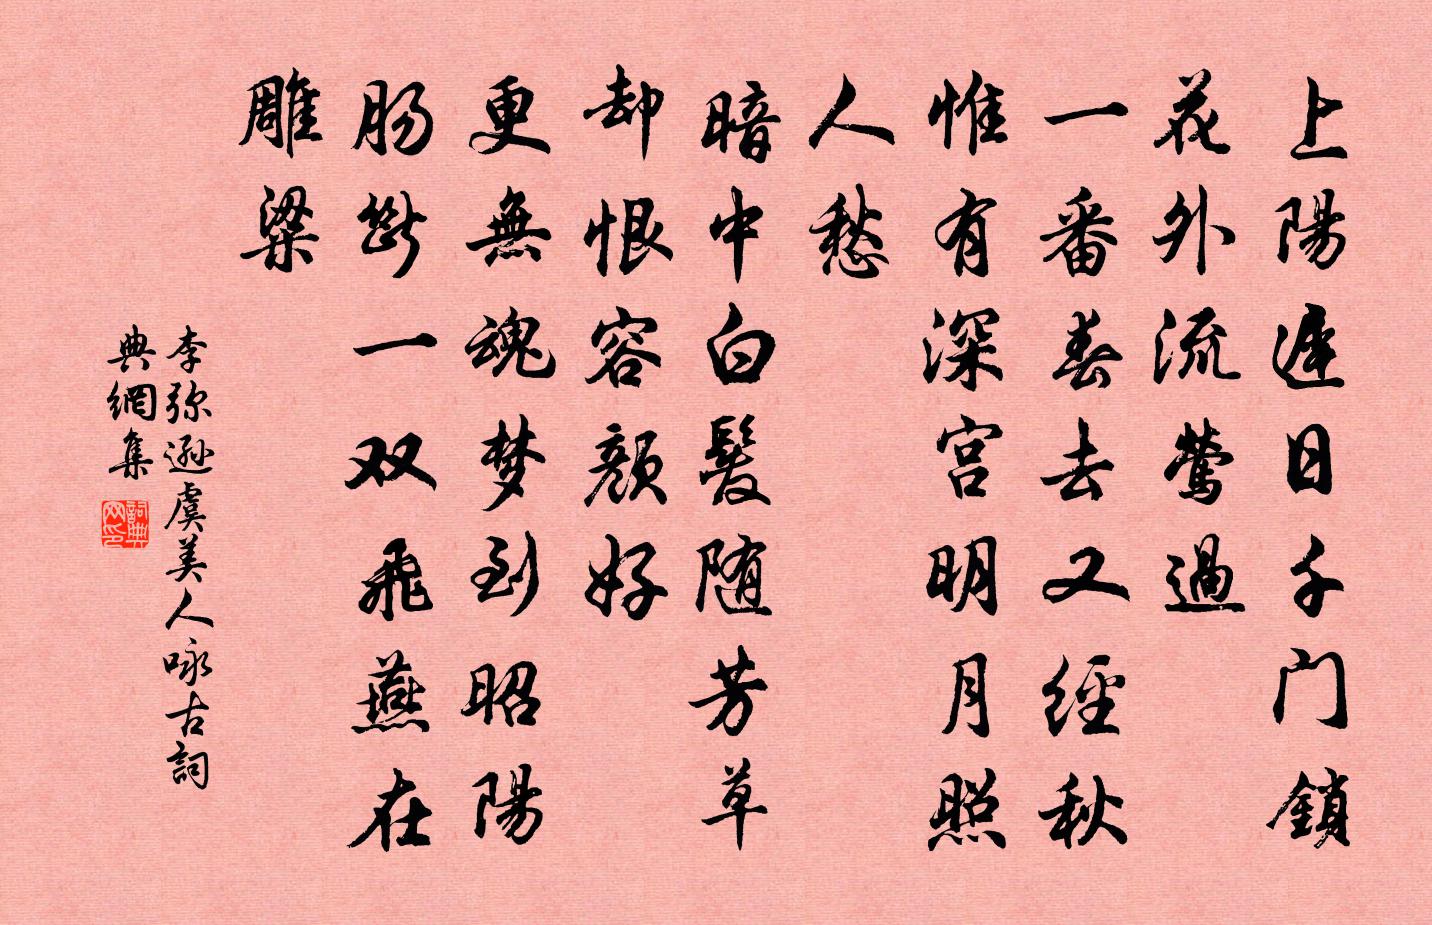 上陽遲日千门鎖
花外流鶯過
一番春去又經秋
惟有深宫明月照
人愁
暗中白髮随芳草
却恨容顔好
更無魂梦到昭陽
肠斷一双飛燕在
雕梁
李弥遜虞美人咏古詞
典網集
詞典网印